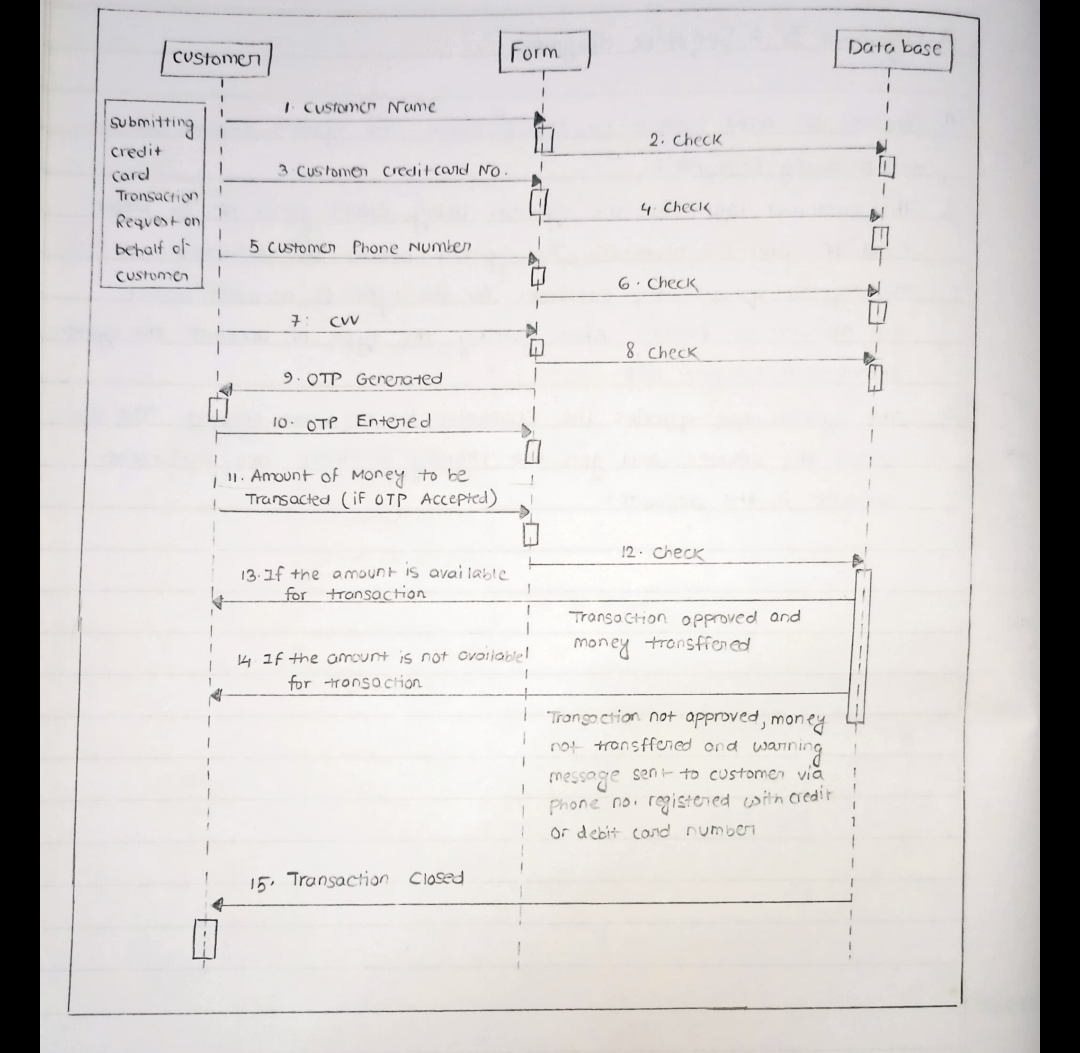 Customer
Form
Database
Submitting
credit
card
Transaction
Request on
behalf of
customer
1. Customer Name
2. Check
3 Customer credit card No.
4. Check
5 Customer Phone Number
6. Check
7: CVV
8 Check
9. OTP Generated
10. OTP Entered
11. Amount of Money to be
Transacted (if OTP Accepted)
12. Check
13. If the amount is available
for transaction
Transaction approved and
money transffered
14 If the amount is not available
for transaction
Transaction not approved, money
not transffered and warning
message sent to customer via
phone no. registered with credit
or debit card number
15. Transaction Closed